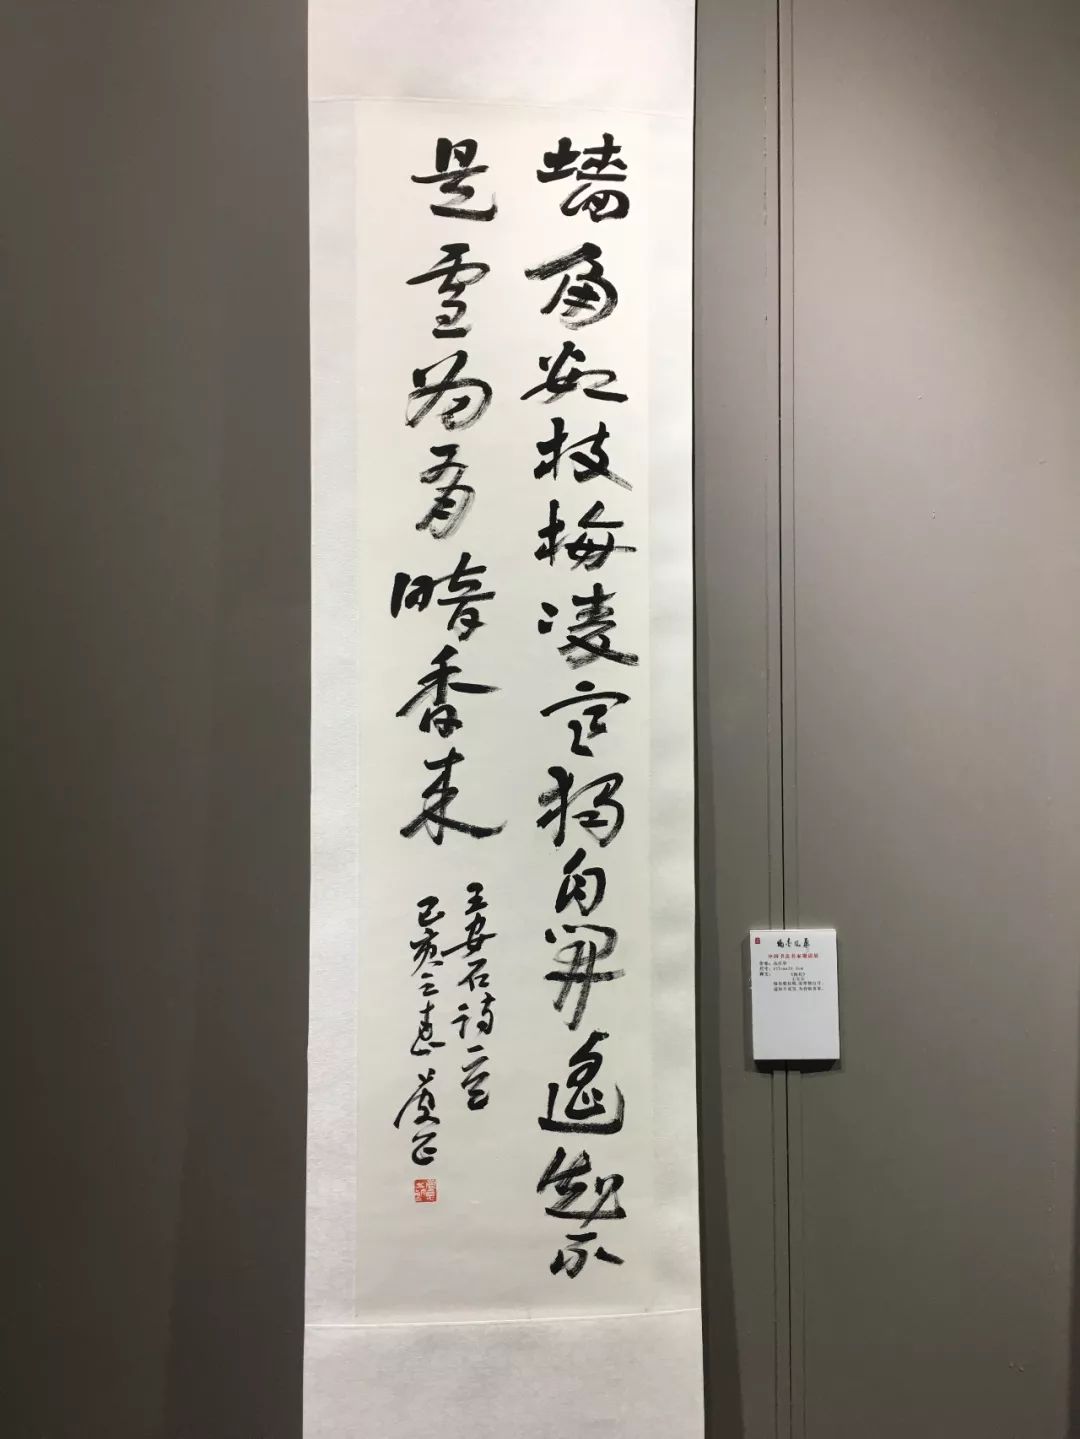 墙角数枝梅凌寒独自开遥知不
是雪为有暗香来
王安石诗一首
己亥之春
中国书法名家邀请展
《梅花》
王安石
墙角数枝梅,凌寒独自开。
遥知不是雪,为有暗香来。